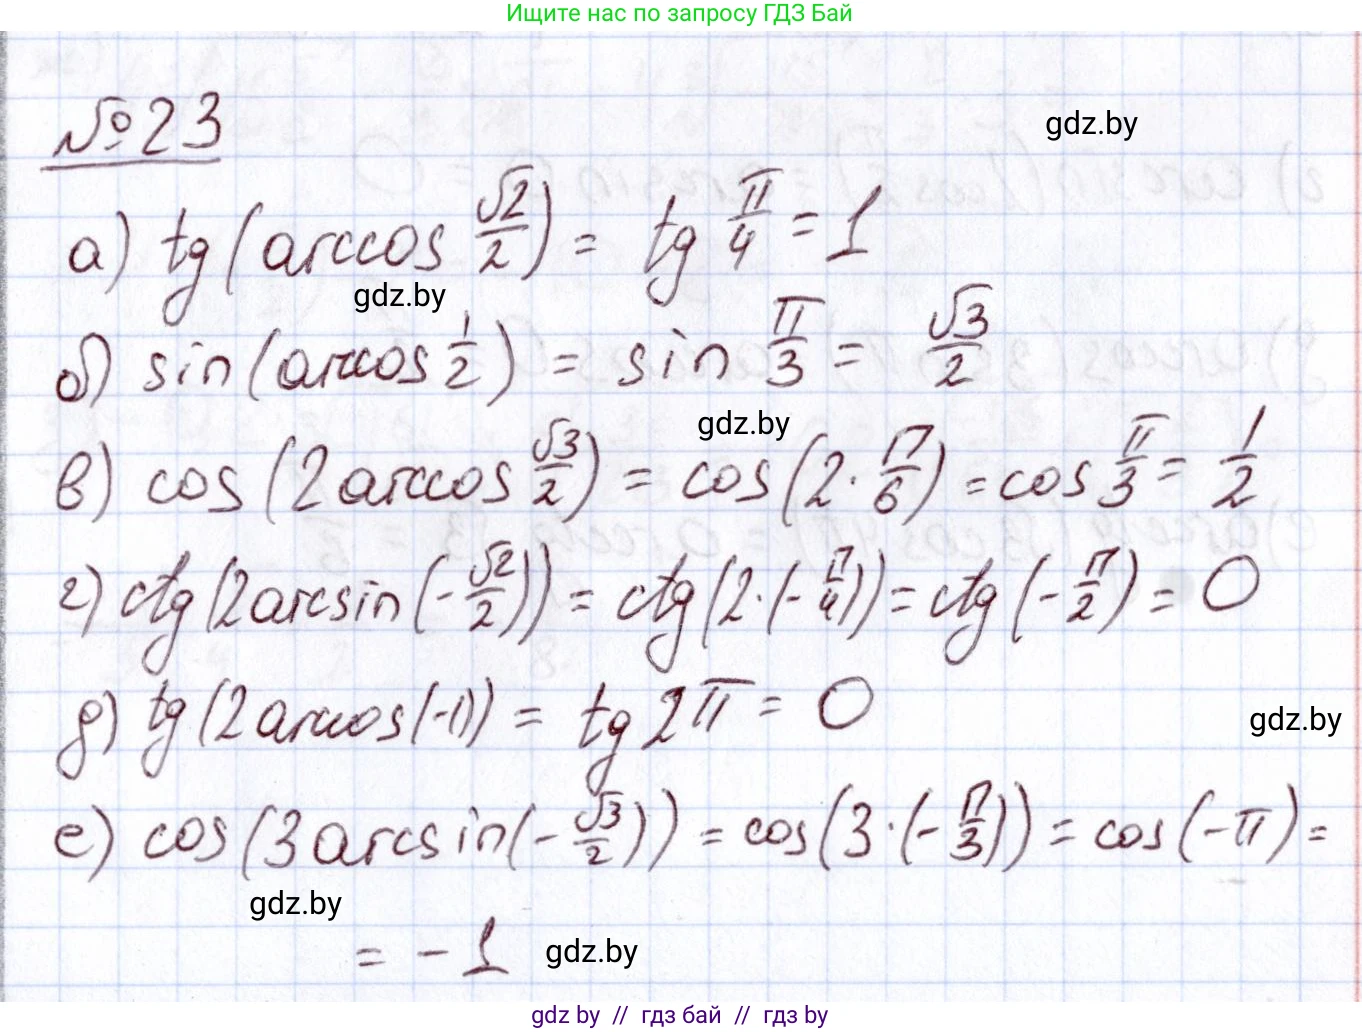 Ищите нас по запросу ГДЗ Бай
№23
gdz.by
а) tg(arccos √2/2) = tg π/4 = 1
gdz.by
б) sin(arccos 1/2) = sin π/3 = √3/2
gdz.by
в) cos(2arccos √3/2) = cos(2·π/6) = cos π/3 = 1/2
г) ctg(2arcsin(-√2/2)) = ctg(2·(-π/4)) = ctg(-π/2) = 0
д) tg(2arccos(-1)) = tg 2π = 0
gdz.by
е) cos(3arcsin(-√3/2)) = cos(3·(-π/3)) = cos(-π) =
gdz.by
= -1
gdz.by
gdz by // гдз бай // гдз by